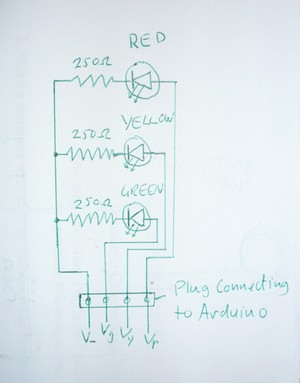 RED
250Ω
YELLOW
250Ω
GREEN
250Ω
Plug Connecting
to Arduino
V_ Vg Vy Vr